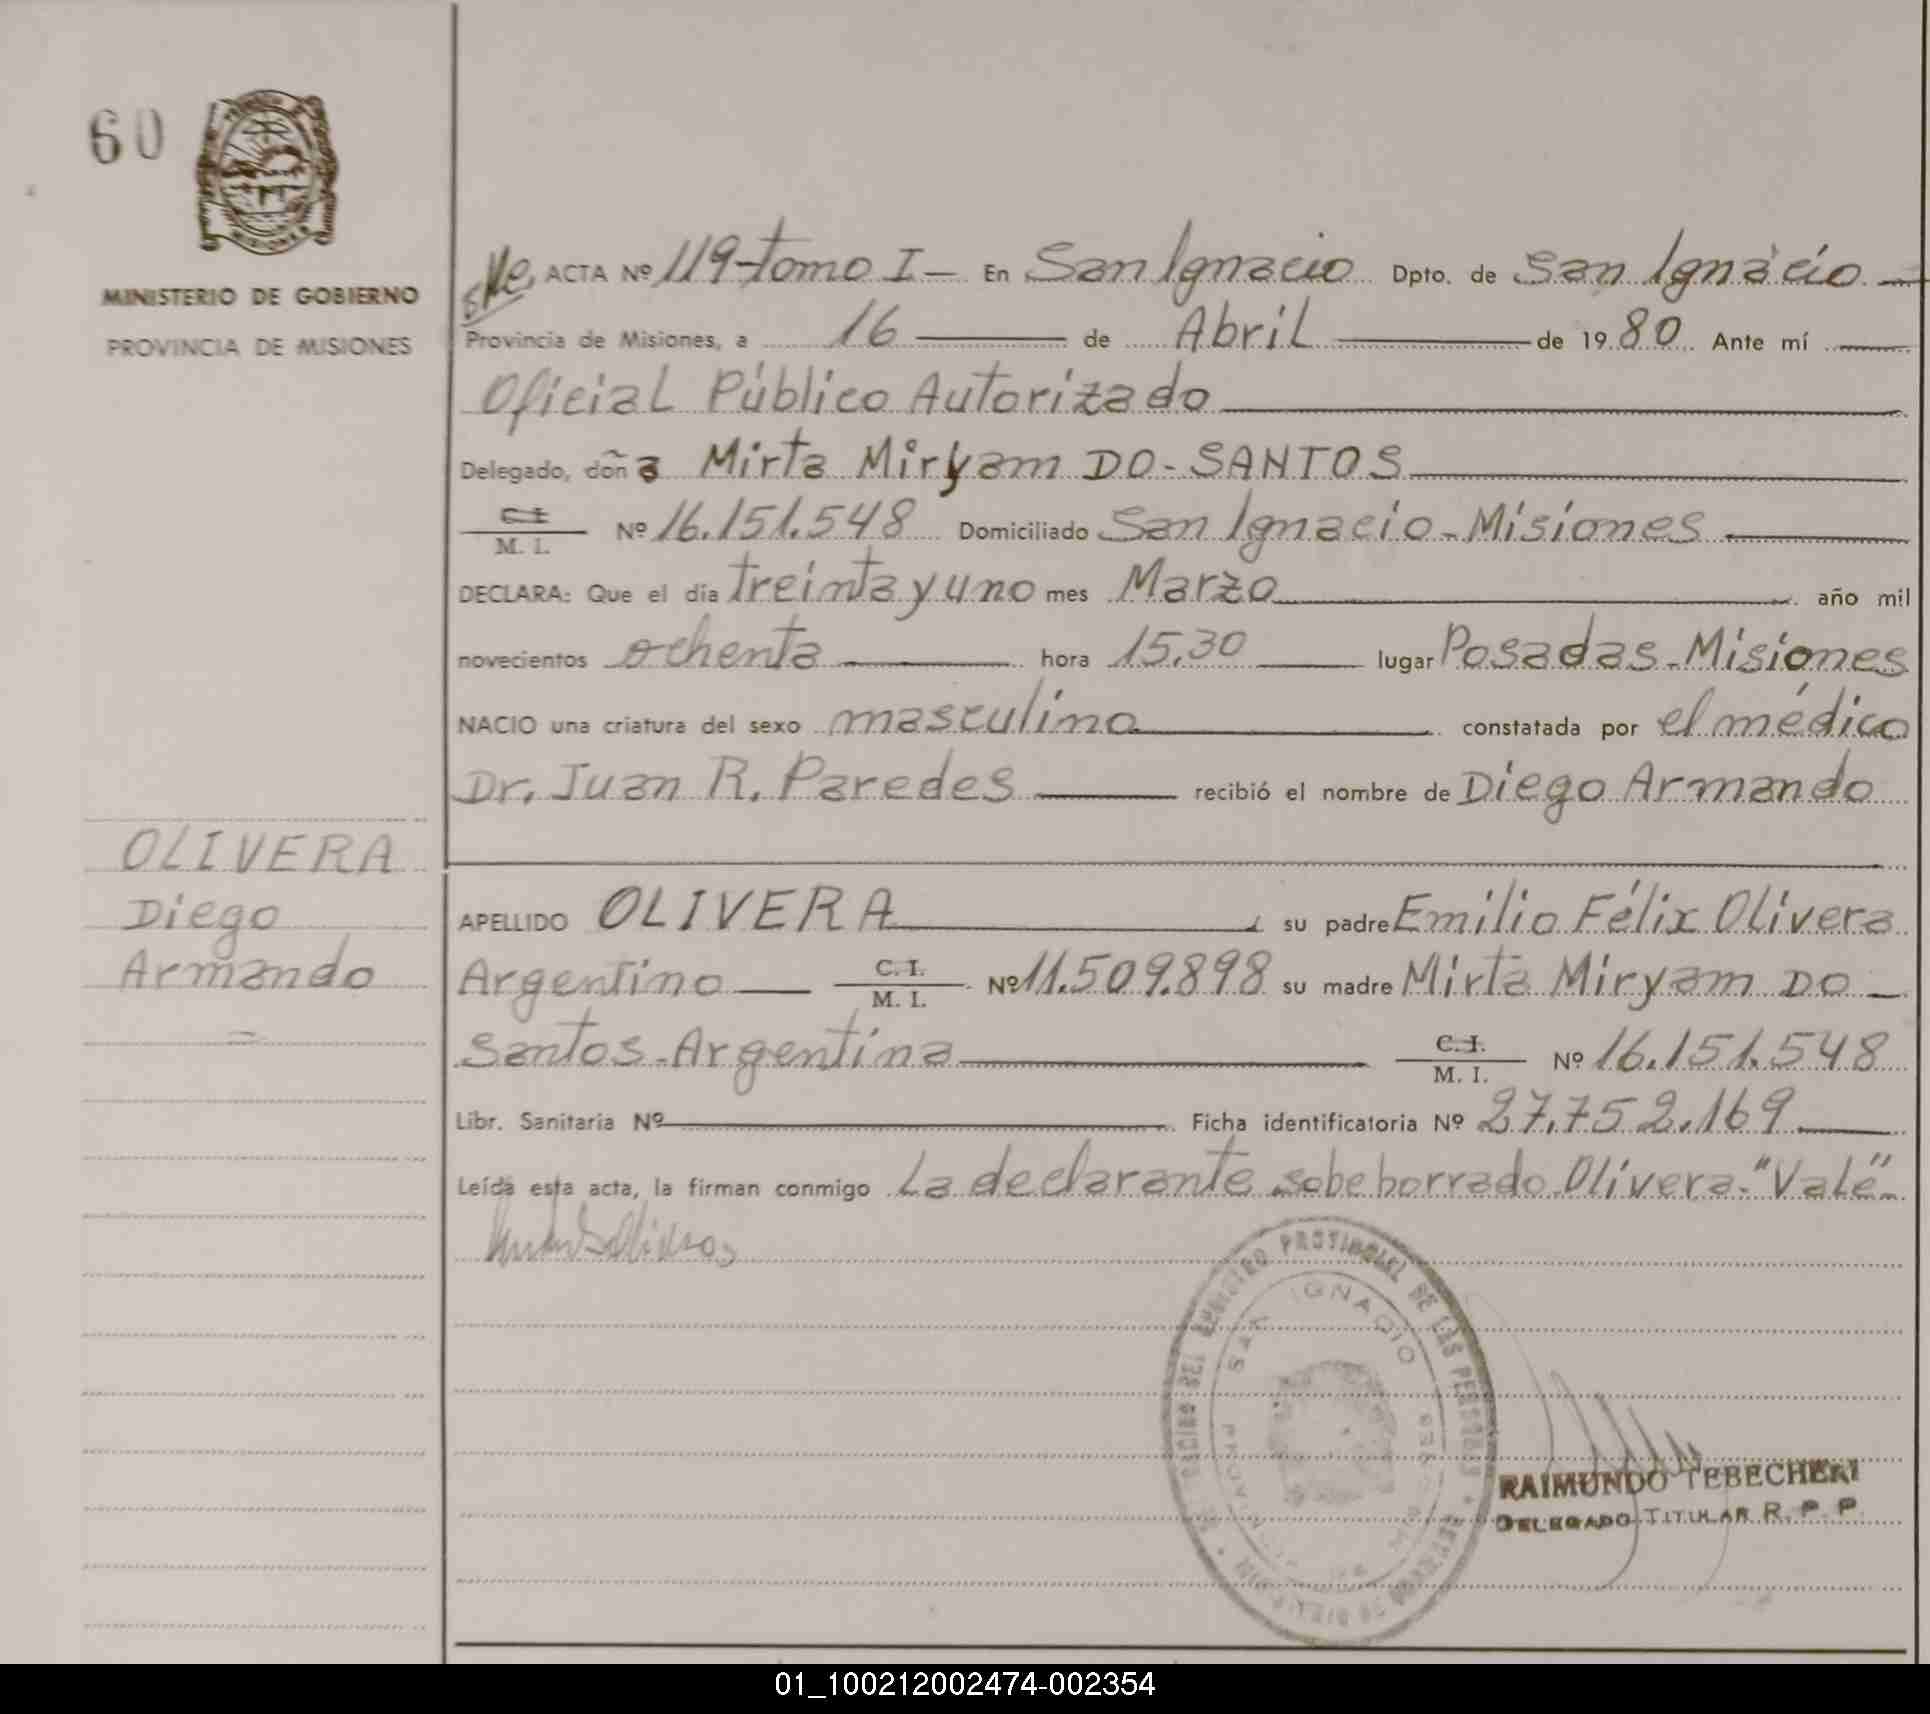 60
MISIONES
MINISTERIO DE GOBIERNO
PROVINCIA DE MISIONES
ACTA Nº 119-tomo I- En San Ignacio Dpto. de San Ignacio
Provincia de Misiones, a 16 de Abril de 1980 Ante mí
Oficial Público Autorizado
Delegado, doña Mirta Miryam DO-SANTOS
C I
M. I. Nº 16.151.548 Domiciliado San Ignacio-Misiones
DECLARA: Que el día treinta y uno mes Marzo año mil
novecientos ochenta hora 15,30 lugar Posadas-Misiones
NACIO una criatura del sexo masculino constatada por el médico
Dr. Juan R. Paredes recibió el nombre de Diego Armando
OLIVERA
Diego
Armando
APELLIDO OLIVERA su padre Emilio Félix Olivera
Argentino C. I. M. I. Nº 11.509.898 su madre Mirta Miryam DO-
Santos-Argentina C. I. M. I. Nº 16.151.548
Libr. Sanitaria Nº Ficha identificatoria Nº 27.752.169
Leída esta acta, la firman conmigo La declarante sobeborrado Olivera-"Vale"-
REGISTRO PROVINCIAL DE LAS PERSONAS
SAN IGNACIO
RAIMUNDO TEBECHERI
DELEGADO TITULAR R. P. P.
01_100212002474-002354